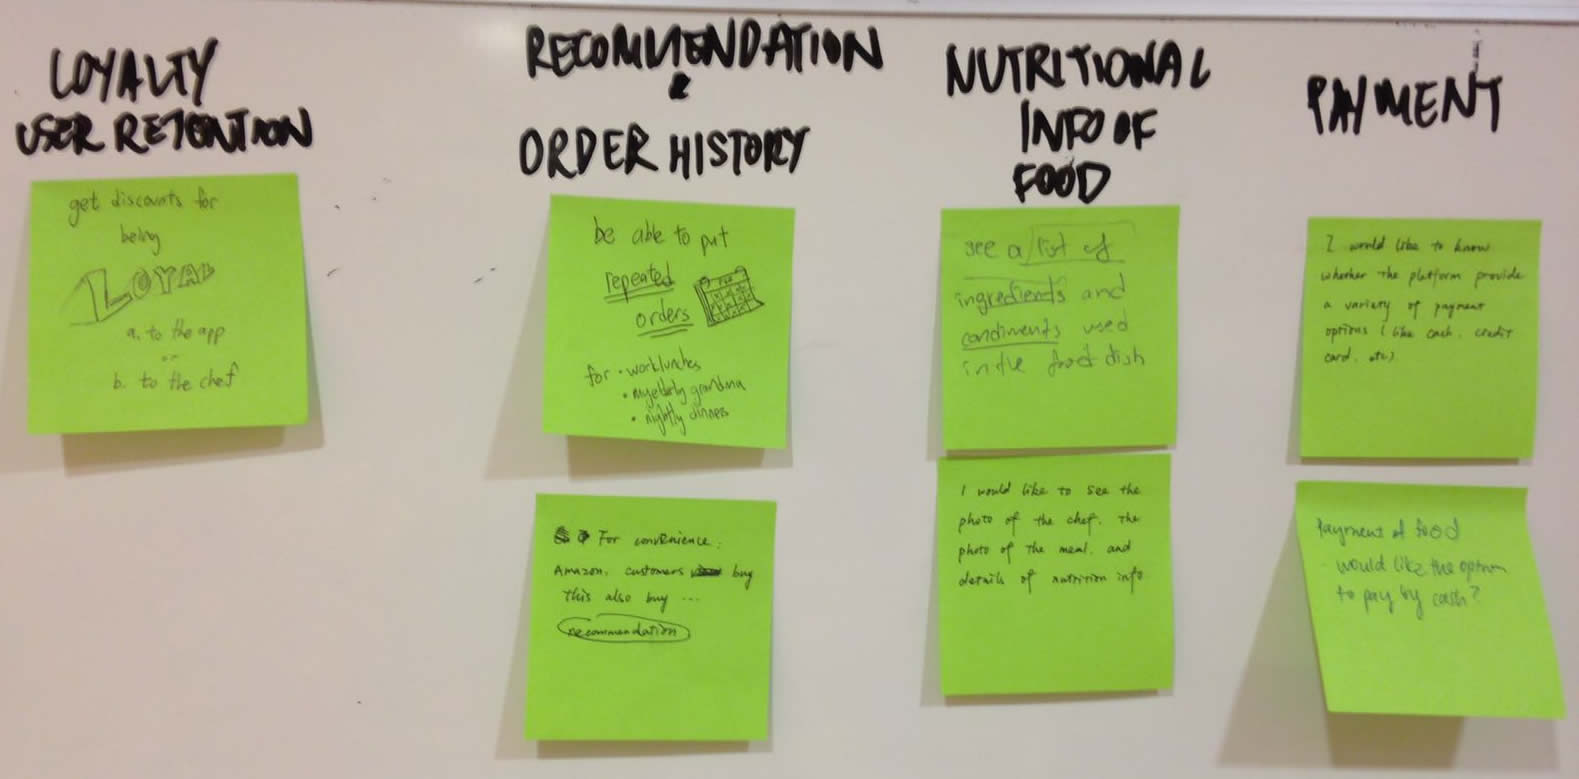 LOYALTY
USER RETENTION
get discounts for
being
LOYAL
a. to the app
or
b. to the chef
RECOMMENDATION
&
ORDER HISTORY
be able to put
repeated
orders
for • worklunches
• my elderly grandma
• nightly dinners
For convenience.
Amazon. customers buy
this also buy ...
recommendation
NUTRITIONAL
INFO OF
FOOD
see a list of
ingredients and
condiments used
in the food dish
I would like to see the
photo of the chef. The
photo of the meal. and
details of nutrition info
PAYMENT
I would like to know
whether the platform provide
a variety of payment
options (like cash. credit
card. etc)
Payment of food
- would like the option
to pay by cash?